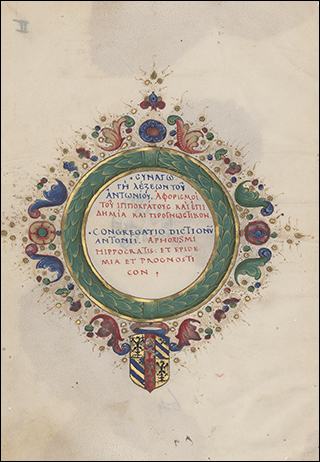 ·ΣΥΝΑΓΩ
ΓΗ ΛΕΞΕΩΝ ΤΟΥ
ΑΝΤΩΝΙΟΥ. ΑΦΟΡΙΣΜΟΙ
ΤΟΥ ΙΠΠΟΚΡΑΤΟΥΣ ΚΑΙ ΕΠΙ
ΔΗΜΙΑ ΚΑΙ ΠΡΟΓΝΩΣΤΙΚΟΝ
·CONGREGATIO DICTIONV̄
ANTONII. APHORISMI
HIPPOCRATIS. ET EPIDE
MIA ET PROGNOSTI
CON